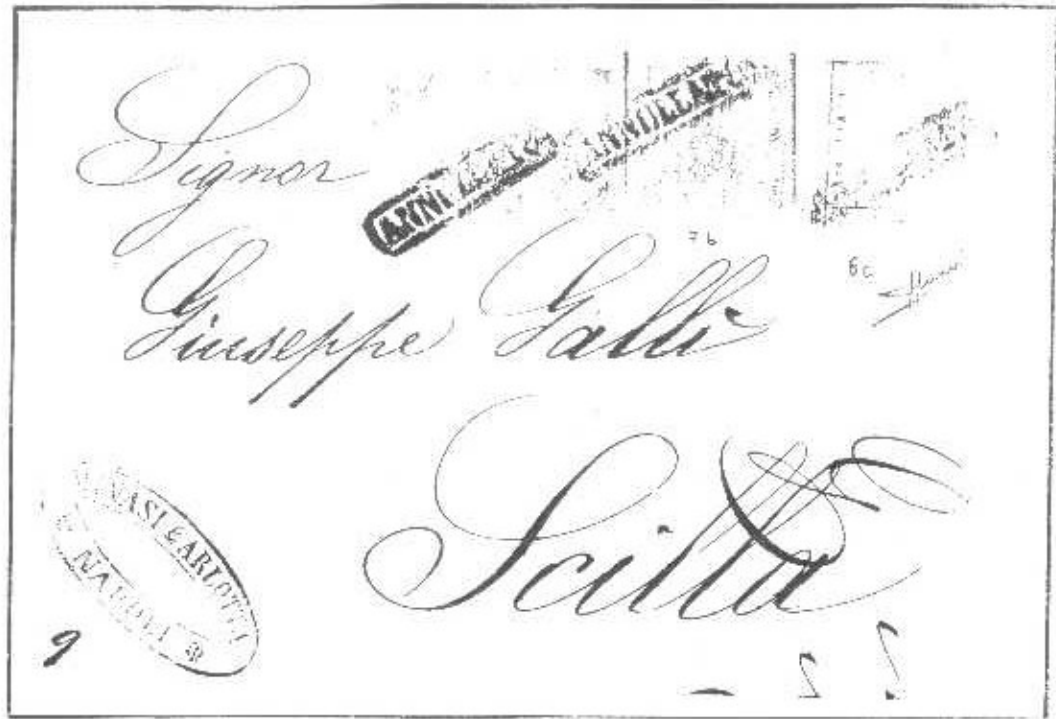 Signor
ANNULLATO
ANNULLATO
7b
6c
Giuseppe Galli
Scilla
VASI & ARLOTTA
NAPOLI
9